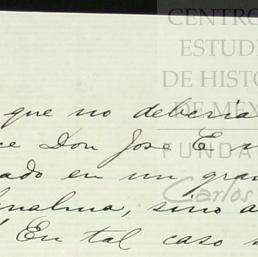 CENTRO
ESTUDI
DE HISTO
DE MÉX
FUNDA
Carlos
que no debería
ce Don Jose E.
ado en un gran
sino a
En tal caso